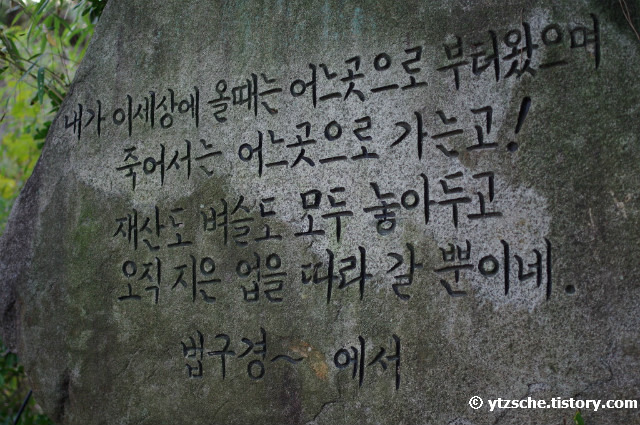 내가 이세상에 올때는 어느곳으로 부터왔으며
죽어서는 어느곳으로 가는고!
재산도 벼슬도 모두 놓아두고
오직 지은 업을 따라 갈 뿐이네.
법구경~ 에서
© ytzsche.tistory.com